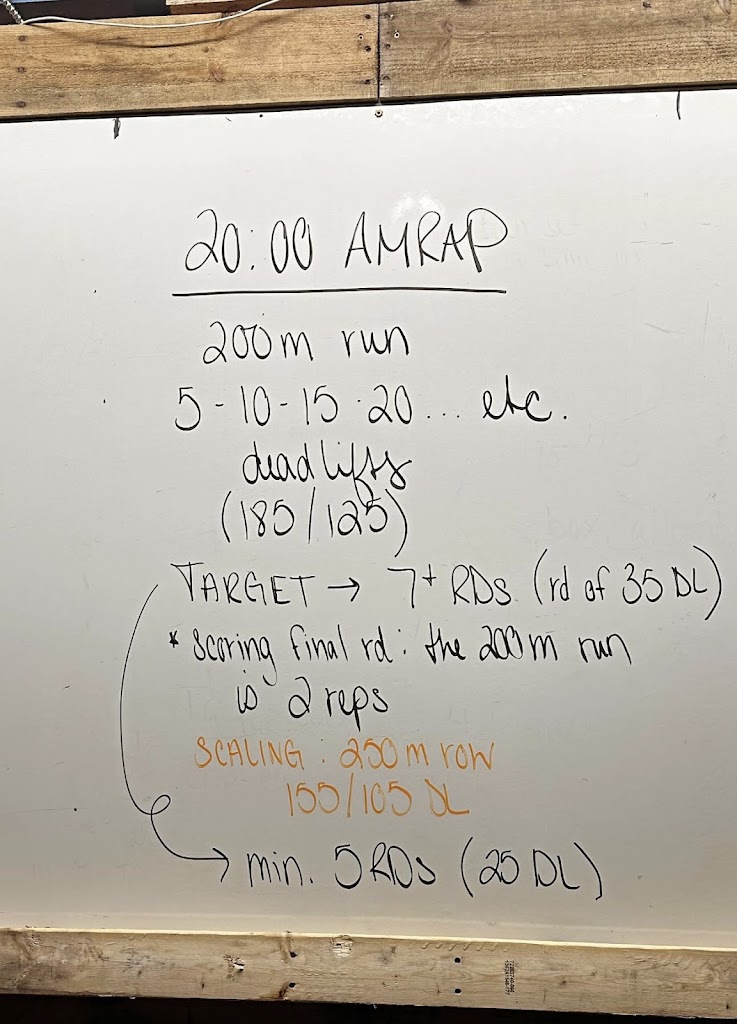 20:00 AMRAP
200m run
5-10-15-20... etc.
deadlifts
(185/125)
TARGET → 7+ RDs (rd of 35 DL)
* Scoring final rd: the 200m run
is 2 reps
SCALING: 250m row
155/105 DL
→ min. 5 RDs (25 DL)